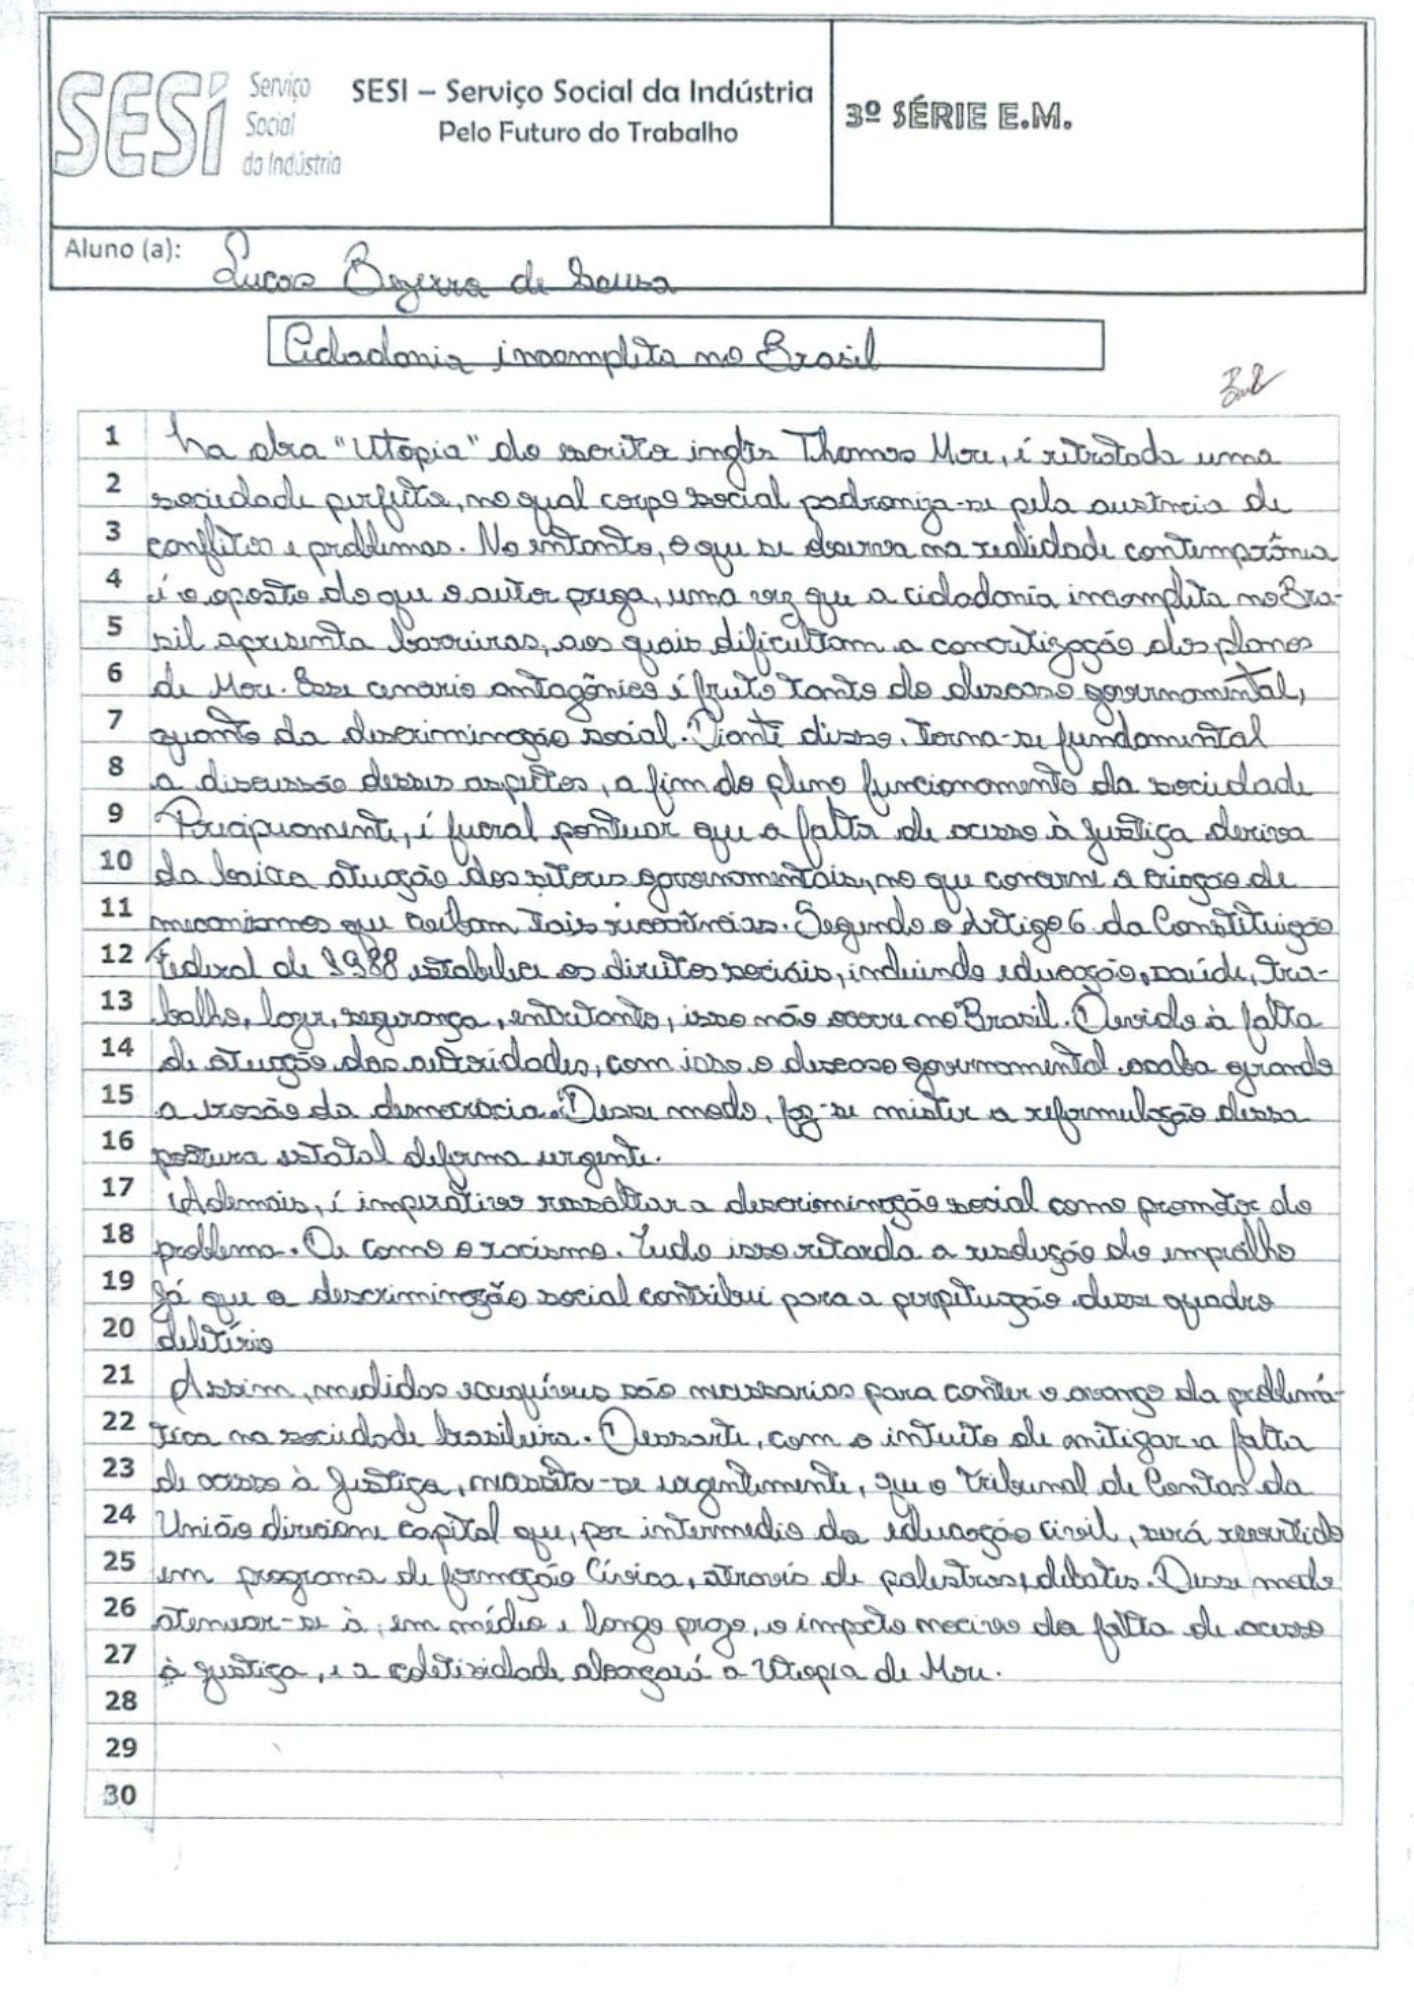 SESI Serviço
Social
da Indústria
SESI – Serviço Social da Indústria
Pelo Futuro do Trabalho
3º SÉRIE E.M.
Aluno (a): Lucas Bezerra de Sousa
Cidadania incompleta no Brasil
1 Na obra "Utopia" do escritor inglês Thomas More, é retratada uma
2 sociedade perfeita, no qual corpo social padroniza-se pela ausência de
3 conflitos e problemas. No entanto, o que se observa na realidade contemporânea
4 é o oposto do que o autor prega, uma vez que a cidadania incompleta no Bra-
5 sil apresenta barreiras, aos quais dificultam a concretização dos planos
6 de More. Esse cenario antagônico é fruto tanto do descaso governamental,
7 quanto da discriminação social. Diante disso, torna-se fundamental
8 a discussão desses aspectos, a fim do pleno funcionamento da sociedade
9 Precipuamente, é fucral pontuar que a falta de acesso à justiça deriva
10 da baixa atuação dos setores governamentais, no que concerne a criação de
11 mecanismos que coibam tais recorrências. Segundo o Artigo 6 da Constituição
12 Federal de 1988 estabelece os direitos sociais, incluindo educação, saúde, tra-
13 balho, lazer, segurança, entretanto, isso não ocorre no Brasil. Devido à falta
14 de atuação das autoridades, com isso o descaso governamental acaba gerando
15 a erosão da democracia. Desse modo, faz-se mister a reformulação dessa
16 postura estatal de forma urgente.
17 Ademais, é imperativo ressaltar a descriminação social como promotor do
18 problema. De como o racismo. Tudo isso retarda a resolução do empecilho
19 Já que a descriminação social contribui para a perpetuação desse quadro
20 deletério
21 Assim, medidas exequíveis são necessarias para conter o avanço da problemá-
22 tica na sociedade brasileira. Dessarte, com o intuito de mitigar a falta
23 de acesso à justiça, necessita-se urgentemente, que o Tribunal de Contas da
24 União direcione capital que, por intermedio da educação civil, será revertido
25 em programa de formação Cívica, através de palestras, debates. Desse modo
26 atenuar-se à, em médio e longo prazo, o impacto nocivo da falta de acesso
27 à justiça, e a coletividade alcançará a Utopia de More.
28
29
30